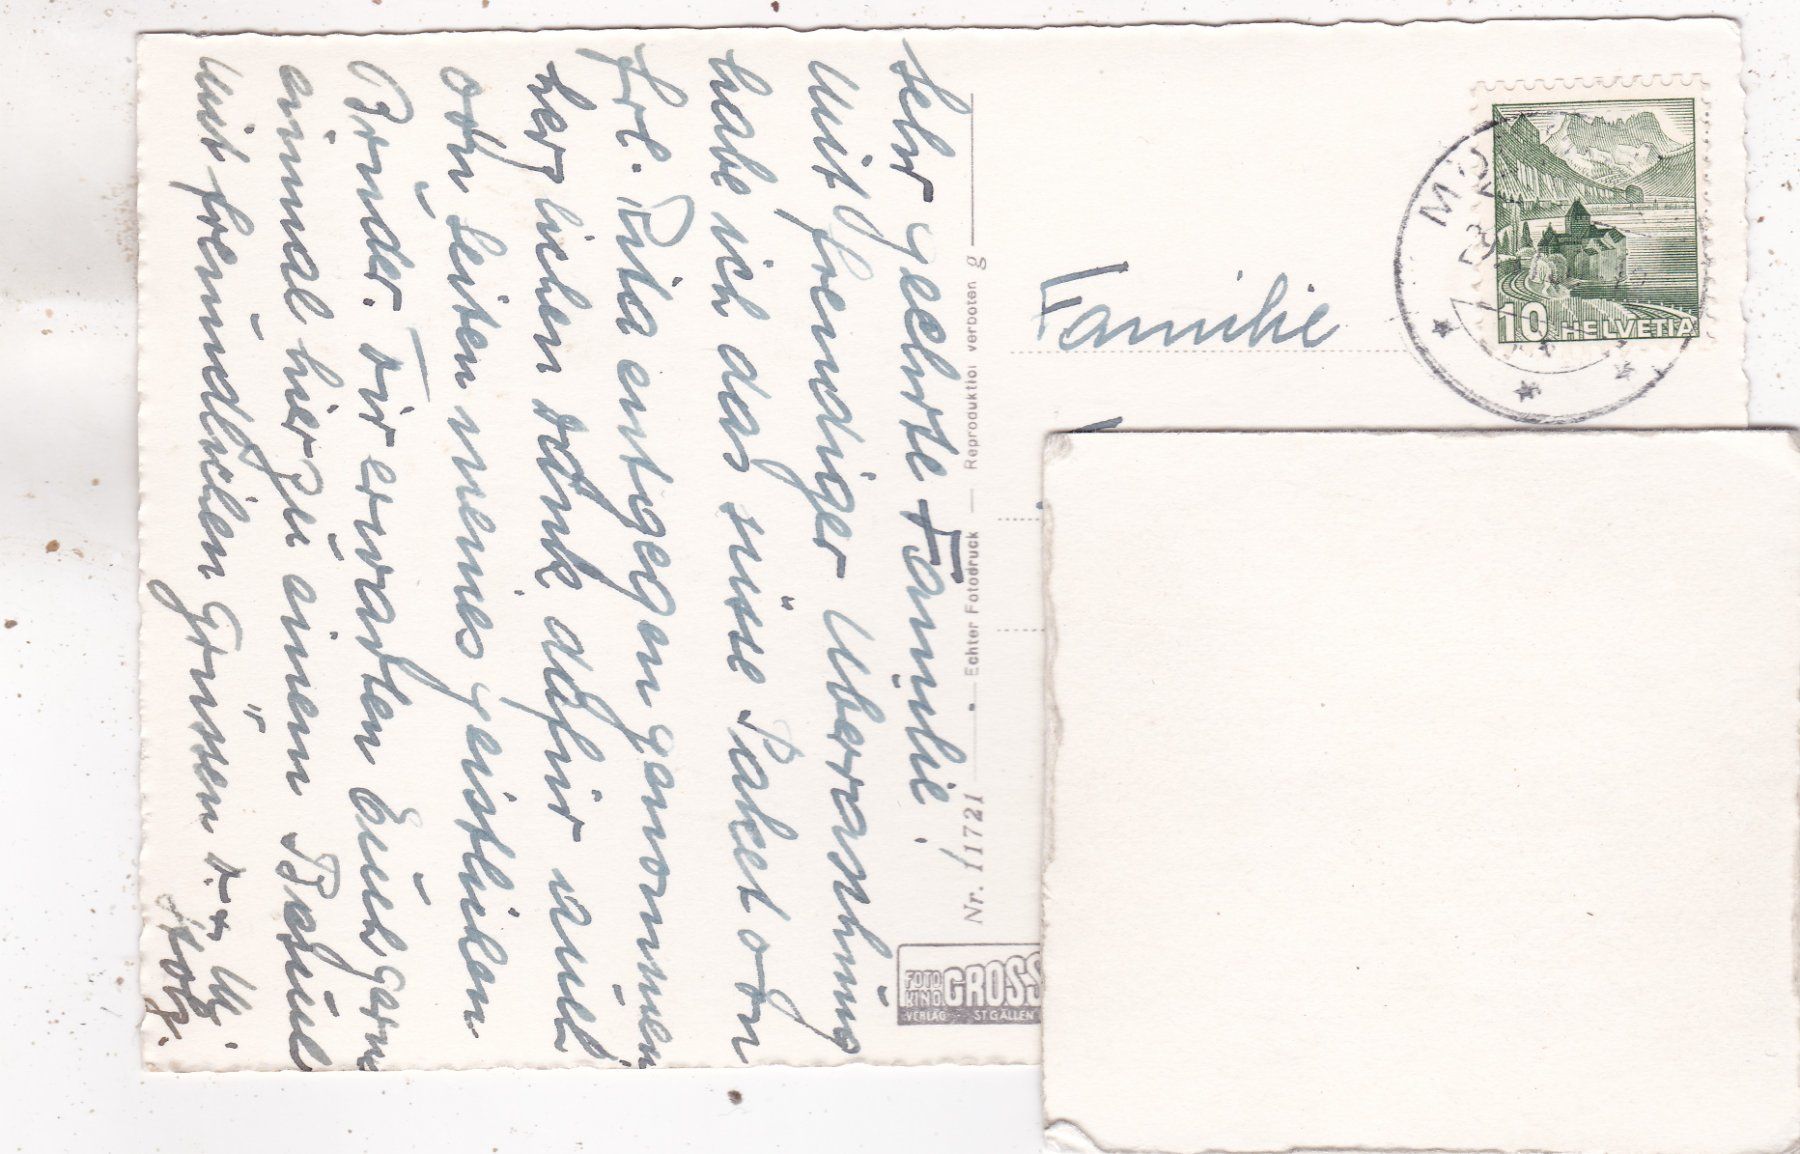 Sehr geehrte Familie!
Mit freudiger Überraschung
habe ich das süsse Paket von
Frl. Rita entgegengenommen
herzlichen Dank dafür auch
von Seiten meines geistlichen
Bruder. Wir erwarten Euch gerne
einmal hier zu einem Besuch
Mit freundlichen Grüssen
Familie
Nr. 11721 — Echter Fotodruck — Reproduktion verboten g
FOTO KINO GROSS
VERLAG ST. GALLEN
10 HELVETIA